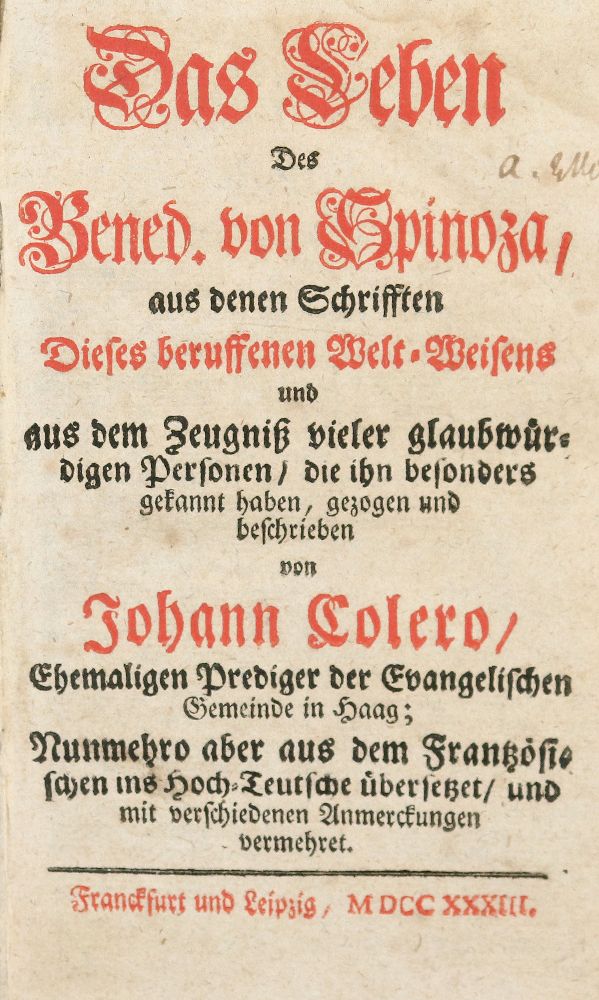 Das Leben
Des
Bened. von Spinoza,
aus denen Schrifften
Dieses beruffenen Welt-Weisens
und
aus dem Zeugniß vieler glaubwür-
digen Personen/ die ihn besonders
gekannt haben, gezogen und
beschrieben
von
Johann Colero/
Ehemaligen Prediger der Evangelischen
Gemeinde in Haag;
Nunmehro aber aus dem Frantzösi-
schen ins Hoch-Teutsche übersetzet/ und
mit verschiedenen Anmerckungen
vermehret.
Franckfurt und Leipzig, MDCC XXXIII.